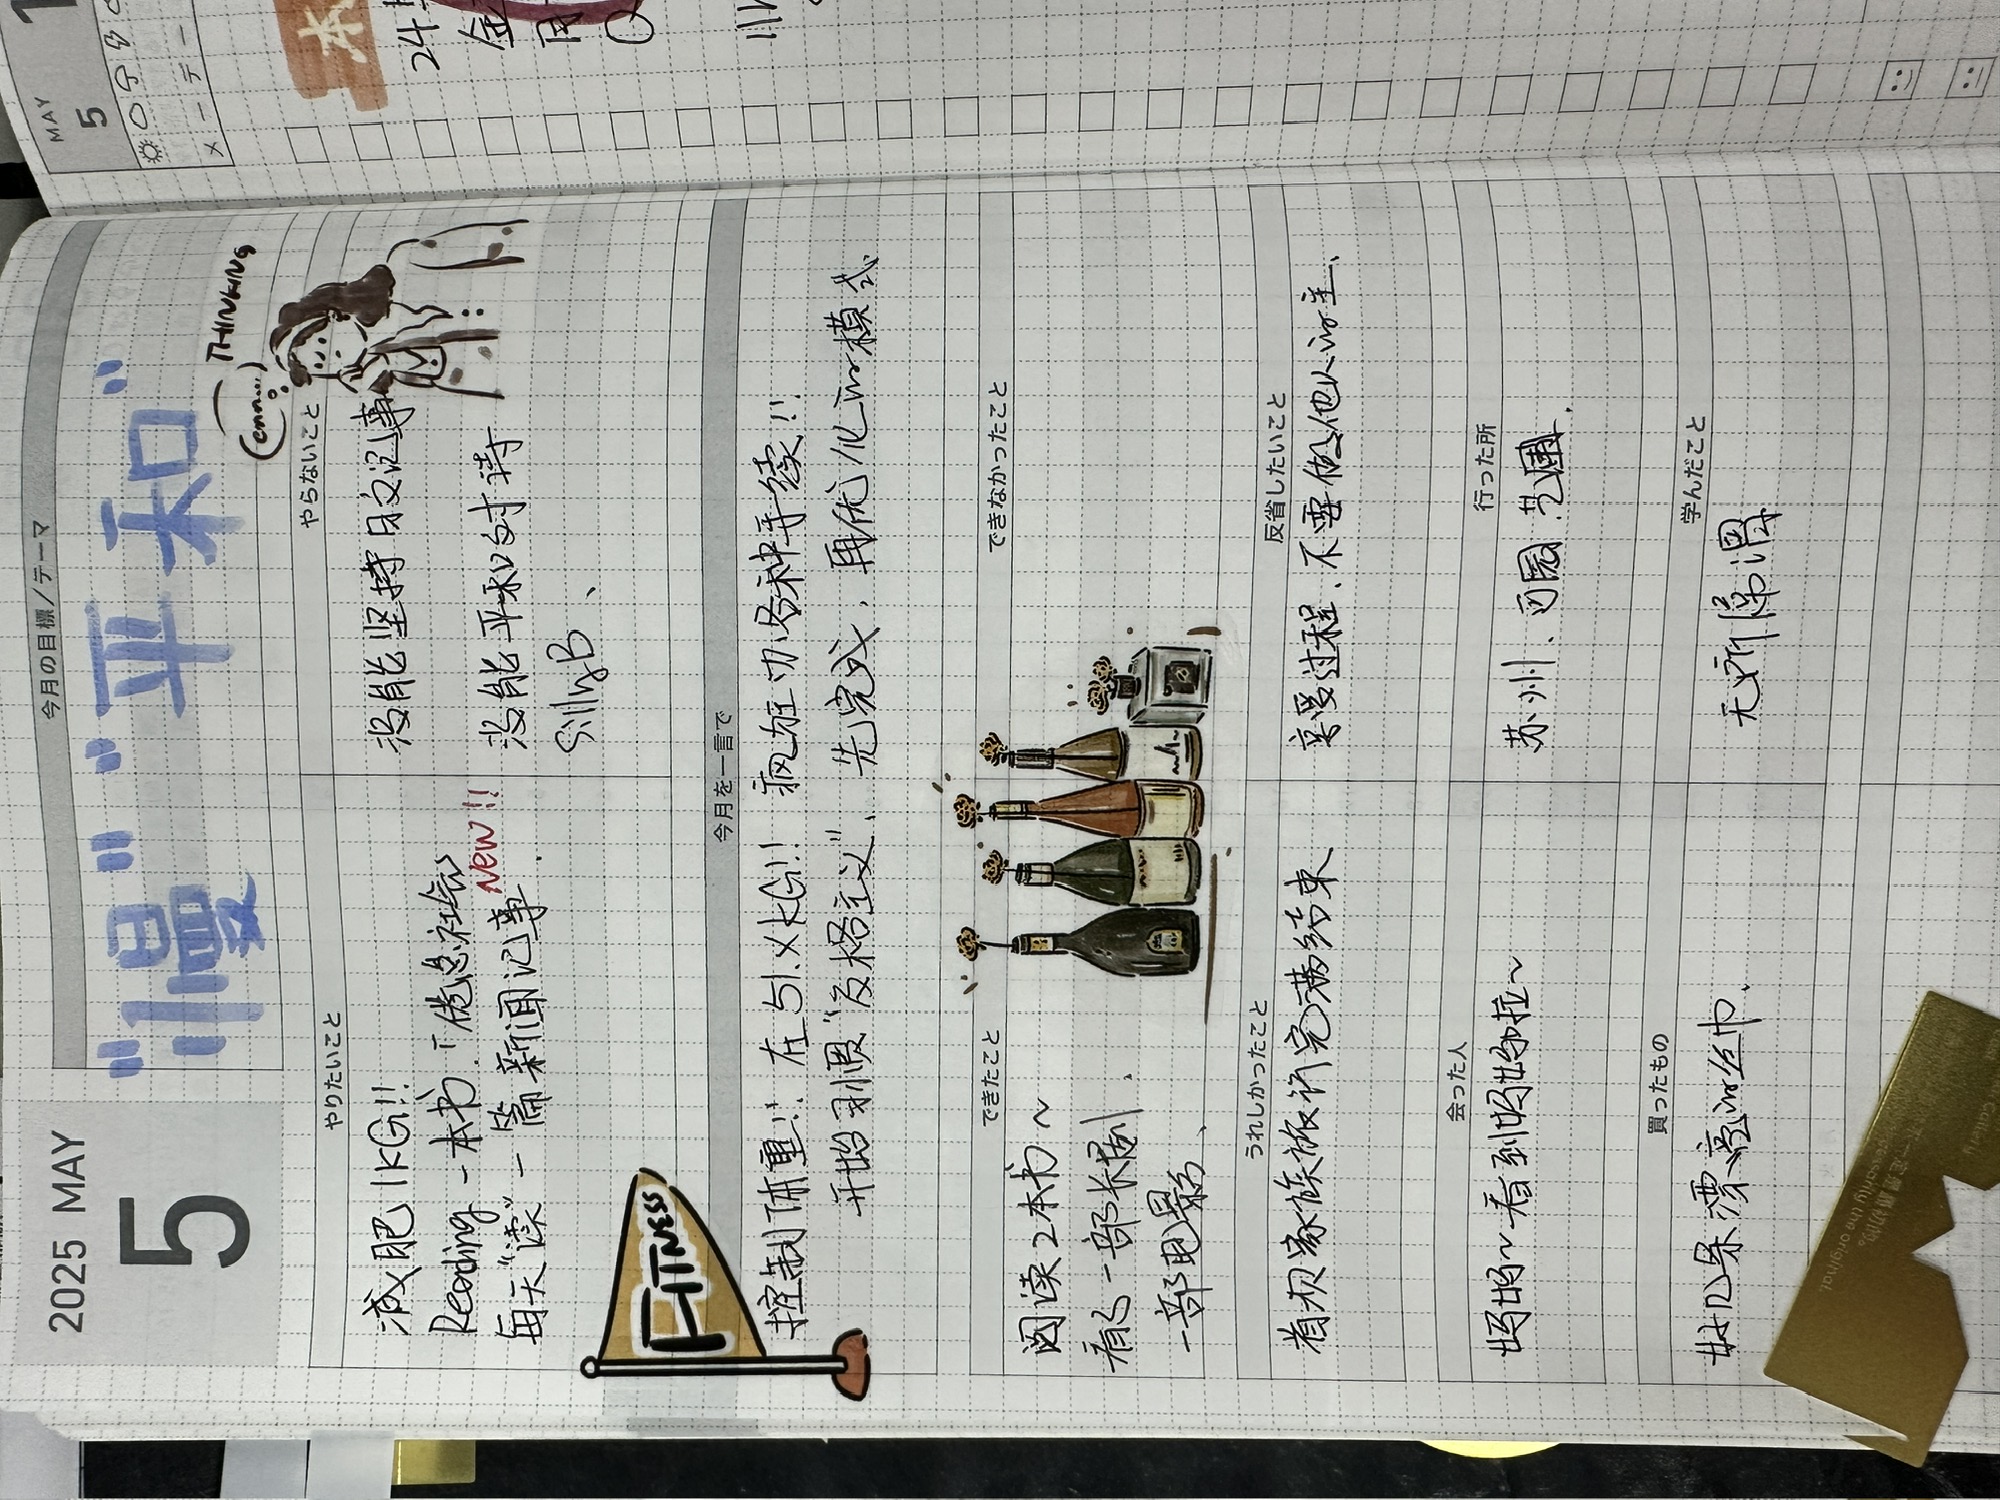 2025 MAY
5
今月の目標／テーマ
"慢" "平和"
THINKING
emm...
やりたいこと
减肥 1KG!!
Reading 一本书.「倦怠社会」
每天“读”一篇新闻记事 NEW!!
FITNESS
やらないこと
没能坚持日文记事
没能平和对待
SillyB、
今月を一言で
控制体重!! 在51.XKG!! 疯狂办各种手续!!
开始习惯“及格主义”、先完成, 再优化の模式、
できたこと
阅读2本书~
看了一部长剧、
一部电影、
できなかったこと
うれしかったこと
首次家族旅行完满结束
反省したいこと
享受过程.不要做他人の主、
会った人
妈妈~看到妈妈啦~
行った所
苏州、可园.艺圃.
買ったもの
好几条漂亮の丝巾、
学んだこと
无所谓
MAY
5
本
24
金